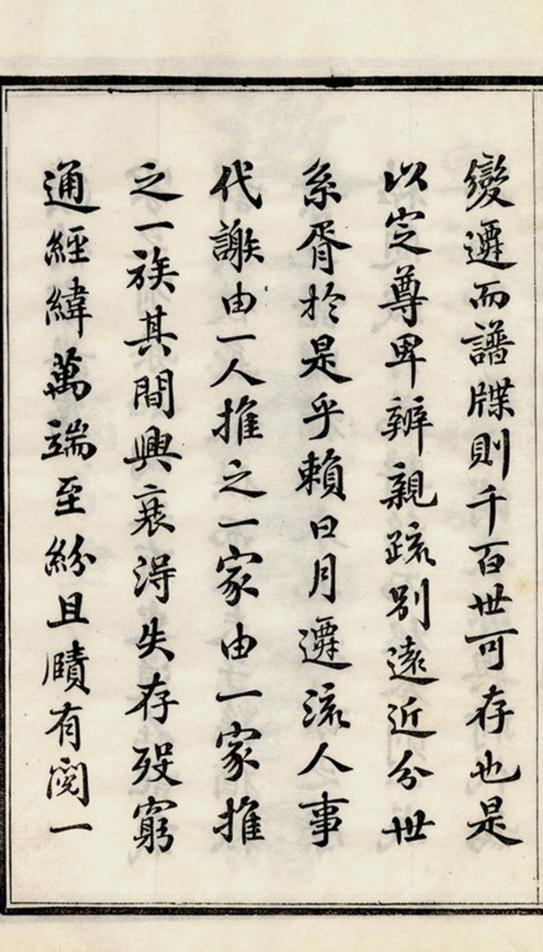 變遷而譜牒則千百世可存也是
以定尊卑辨親疏別遠近分世
系胥於是乎賴日月遷流人事
代謝由一人推之一家由一家推
之一族其間興衰得失存歿窮
通經緯萬端至紛且賾有閱一